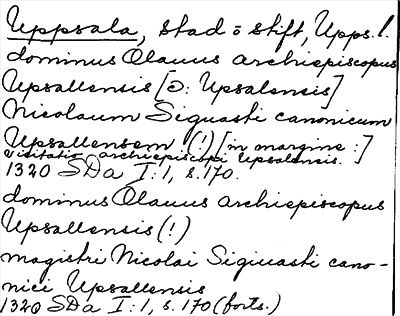 Uppsala, stad o stift, Upps. l.
dominus Olauus archiepiscopus
Upsallensis [ɔ: Upsalensis]
Nicolaum Siguasti canonicum
Upsallensem (!) [in margine:]
visitatio archiepiscopi Upsalensis.
1320 SDa I:1, s. 170.
dominus Olauus archiepiscopus
Upsallensis (!)
magistri Nicolai Sigiuasti cano-
nici Upsallensis
1320 SDa I:1, s. 170 (forts.)